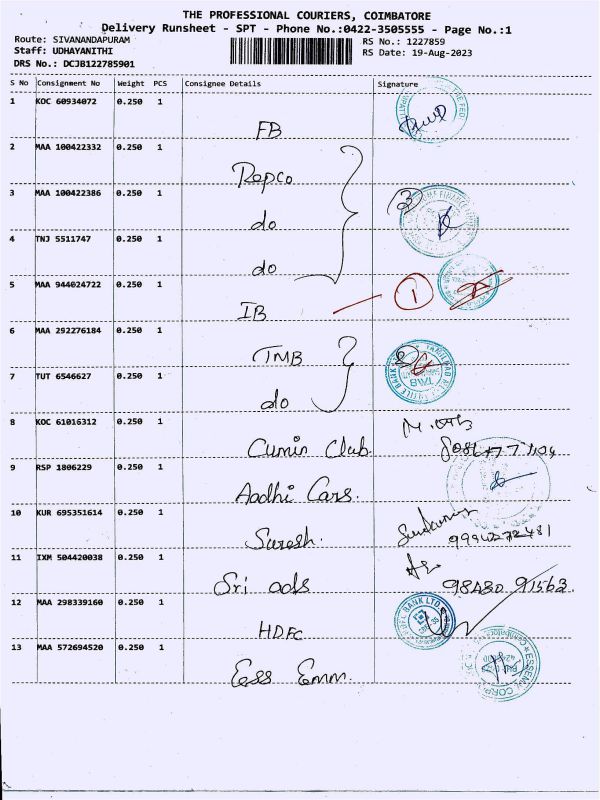 THE PROFESSIONAL COURIERS, COIMBATORE
Delivery Runsheet - SPT - Phone No.:0422-3505555 - Page No.:1
Route: SIVANANDAPURAM
RS No.: 1227859
Staff: UDHAYANITHI
RS Date: 19-Aug-2023
DRS No.: DCJB122785901
S No Consignment No Weight PCS Consignee Details Signature
1 KOC 60934072 0.250 1
FB
2 MAA 100422332 0.250 1
Repco
3 MAA 100422386 0.250 1
do
3
4 TNJ 5511747 0.250 1
do
5 MAA 944024722 0.250 1
IB
1
6 MAA 292276184 0.250 1
TMB
7 TUT 6546627 0.250 1
do
TMB
8 KOC 61016312 0.250 1
Cumin Club
9 RSP 1806229 0.250 1
Aadhi Cars.
10 KUR 695351614 0.250 1
Suresh.
9994272481
11 IXM 504420038 0.250 1
Sri ads
98430 91563.
12 MAA 298339160 0.250 1
HDFC
BANK LTD
13 MAA 572694520 0.250 1
Ess Emm.